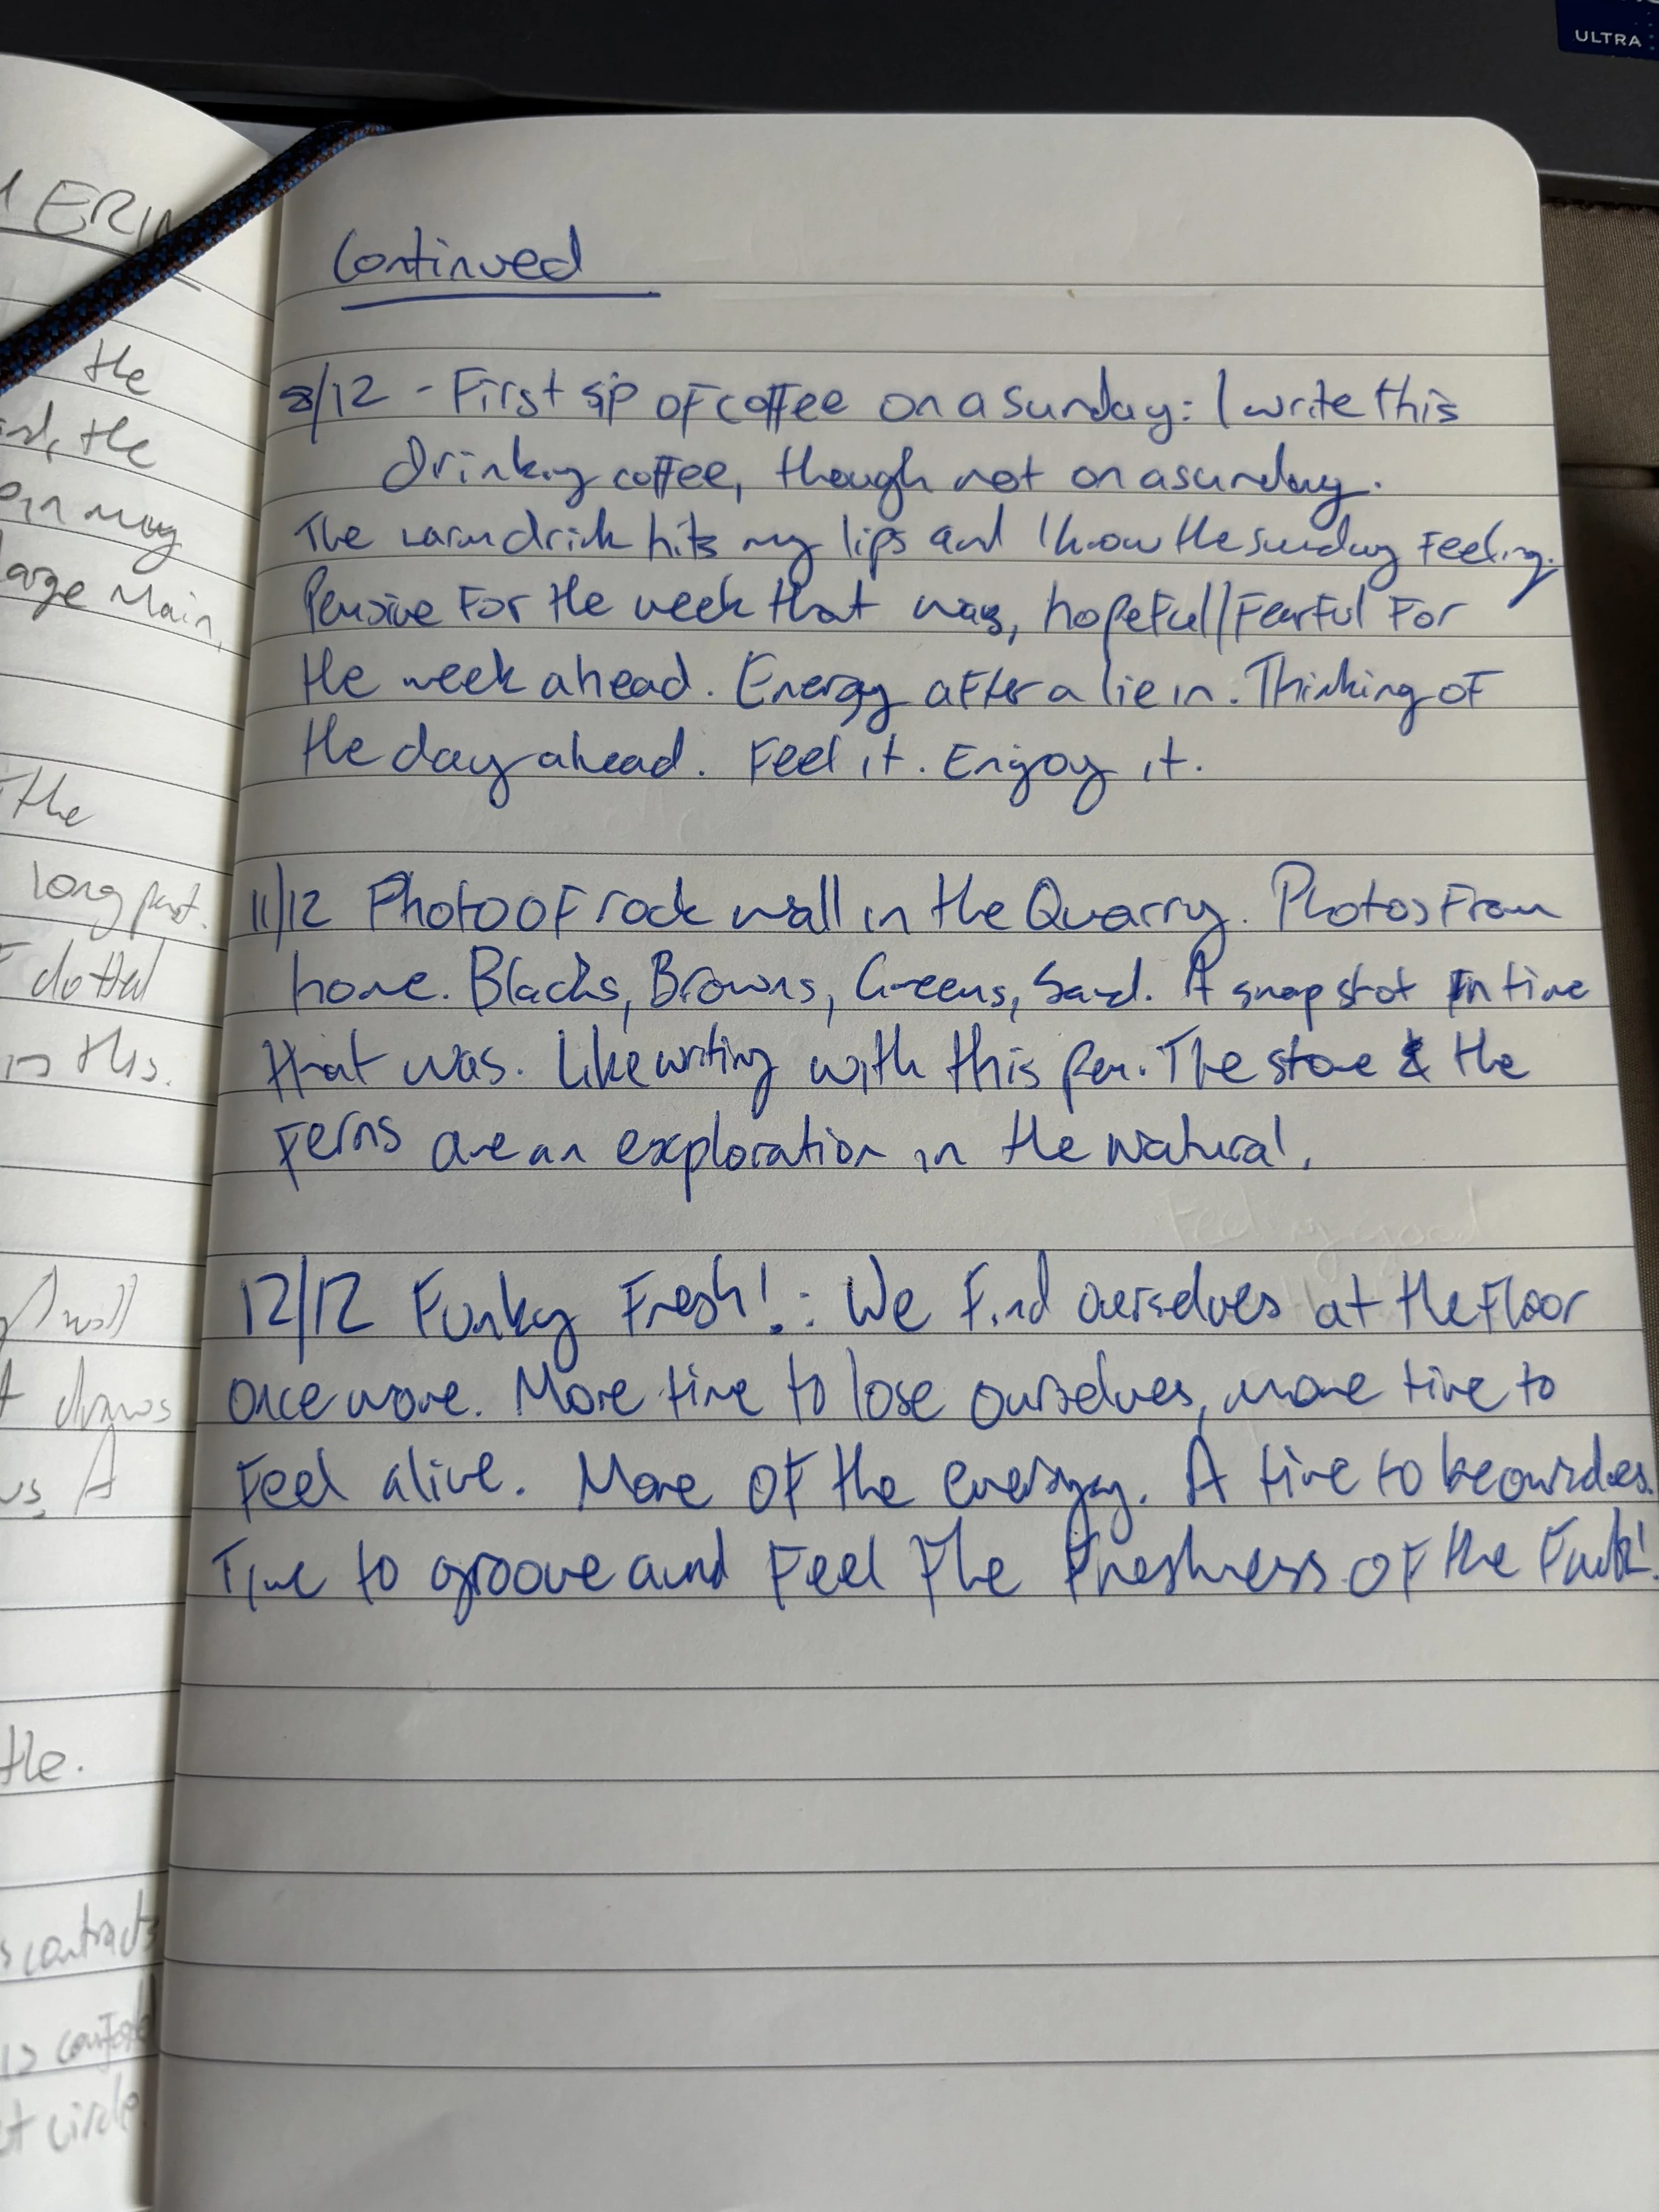 ULTRA
ERIN
the
the
may
large Main,
The
long past.
dotted
in this.
wall
draws
A
the.
contracts
is
circle
Continued
8/12 - First sip of coffee on a sunday: I write this
Drinking coffee, though not on a sunday.
The warm drink hits my lips and I know the sunday Feeling.
Pensive For the week that was, hopeful/Fearful For
the week ahead. Energy after a lie in. Thinking of
the day ahead. Feel it. Enjoy it.
11/12 Photo of rock wall in the Quarry. Photos From
home. Blacks, Browns, Greens, Sand. A snapshot In time
that was. Like writing with this pen. The stone & the
Ferns are an exploration in the Natural.
Feeling good
12/12 Funky Fresh!: We Find ourselves at the Floor
once more. More time to lose ourselves, more time to
Feel alive. More of the energy. A time to be ourselves.
Time to groove and Feel The Freshness of the Funk!